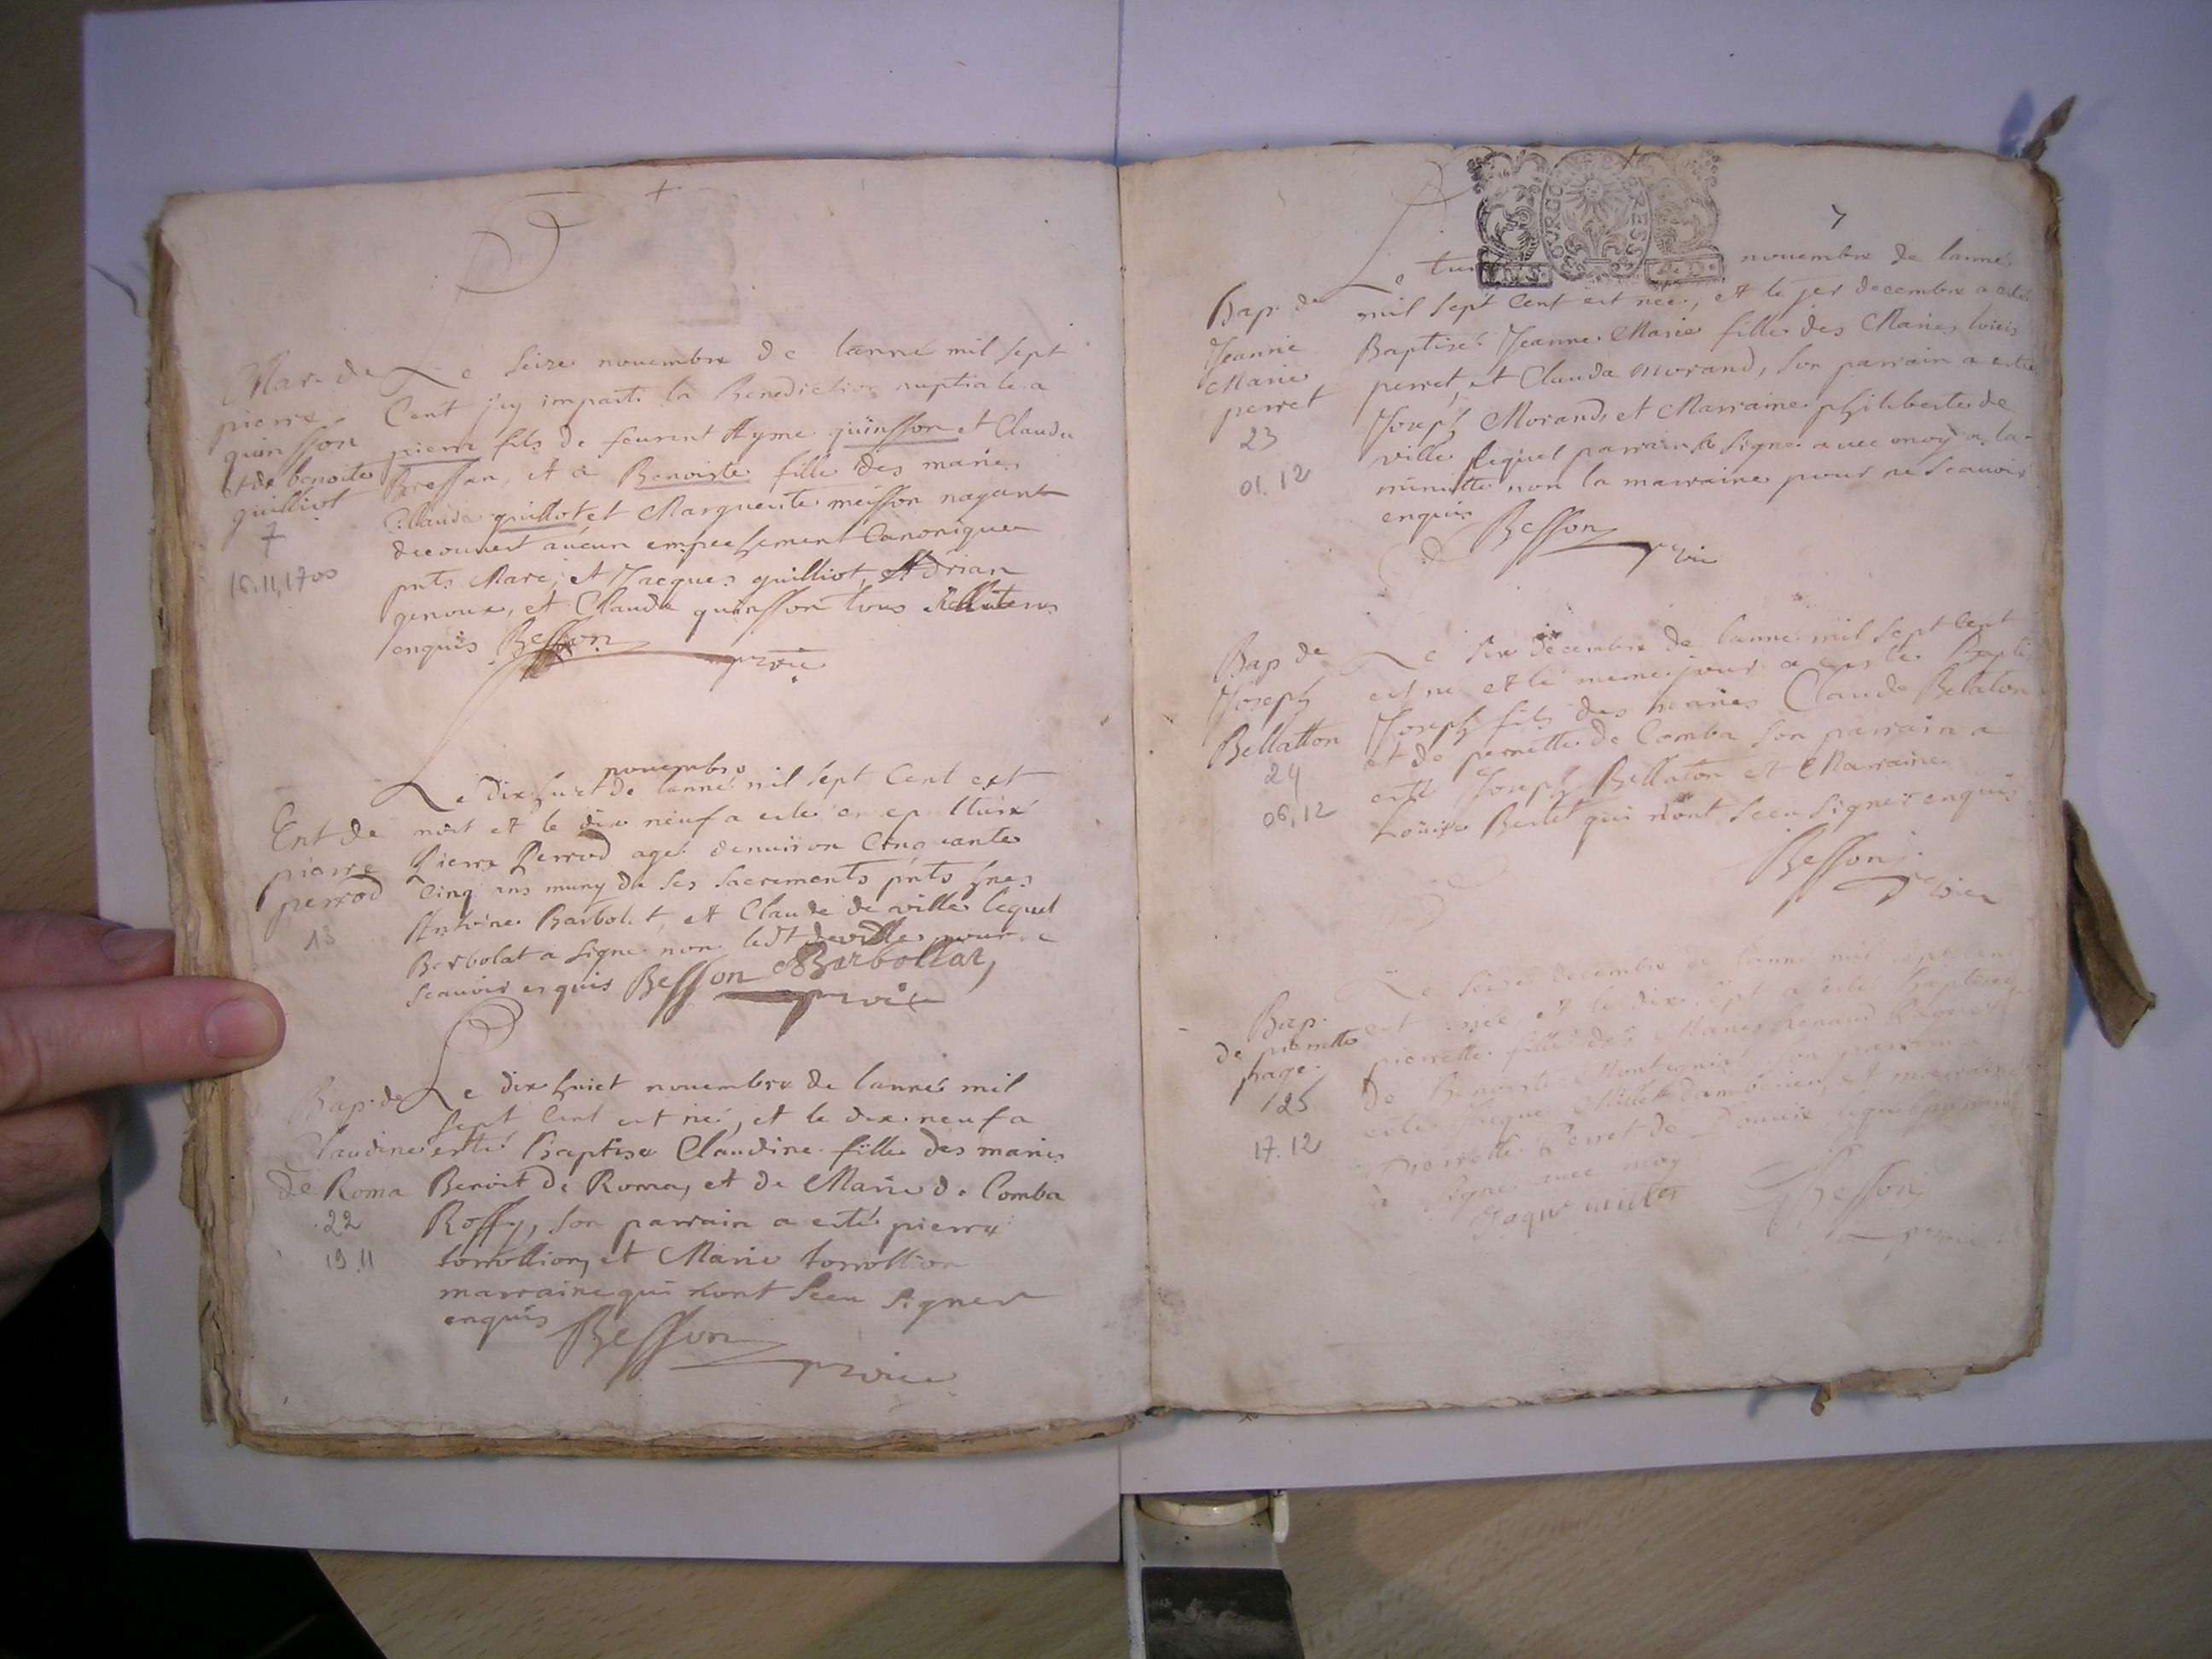 Mar. de
pierre
quinsson
et de benoite
guilliot
7
16.11.1700
Le seize novembre de lanné mil sept
Cent j'ey imparti la Benediction nuptiale a
pierre fils de feurent Ayme quinsson et Claude
Bressan, et a Benoiste fille des mariés
Claude guillot et Marguerite meisson nayant
decouvert aucun empeschement Canonique
pnts Marc, et Jacques guilliot, Adrian
genoux, et Claude quinsson tous
enquis Besson
Ent de
pierre
perrod
13
novembre
Le dixhuit de lanné mil sept Cent est
mort et le dix neuf a esté ensepulturé
Pierre Perrod agé denuiron Cinquante
Cinq ans muny de ses sacrements pnts hnes
Antoine Barbolat, et Claude de ville lequel
Berbolat a signé non ledt deville pour
scauoir enquis Besson Barbollat
Bap. de
Claudine
de Roma
22
19.11
Le dix huict novembre de lanneé mil
sept Cent est né, et le dix neuf a
esté baptisé Claudine fille des mariés
Benoit de Roma, et de Marie de Comba
Roffy, son parrain a esté pierre
torrollion, et Marie torrollion
marraine qui nont sceu signer
enquis Besson
7
Bap. de
Jeanne
Marie
perret
23
01.12
Le novembre de lanné
mil sept Cent est neé, et le jer decembre a esté
Baptisé Jeanne Marie fille des Mariés loüis
perret, et Claude Morand, son parrain a esté
Joseph Morand, et Marraine philiberte de
ville lequel parrain a signé avec moy a la
minutte non la marraine pour ne scauoir
enquis Besson
Bap de
Joseph
Bellatton
24
06.12
Le six decembre de lanné mil sept Cent
est né et le meme jour a esté Bapti
Joseph fils des mariés Claude Belaton
et de pernette de Comba son parrain a
esté Joseph Bellaton et Marraine
Loüise Berlet qui nont sceu signer enquis
Besson
Bap.
de pierrette
page
25
17.12
Le seize decembre de lanné mil sept cent
est neé et le dix sept a esté baptisee
pierrette fille des Mariés
de Benoiste son parrain
esté Jaque Millet et marraine
Pierrette Perret de lequel parrain
a signé avec moy
Jaque millet Besson